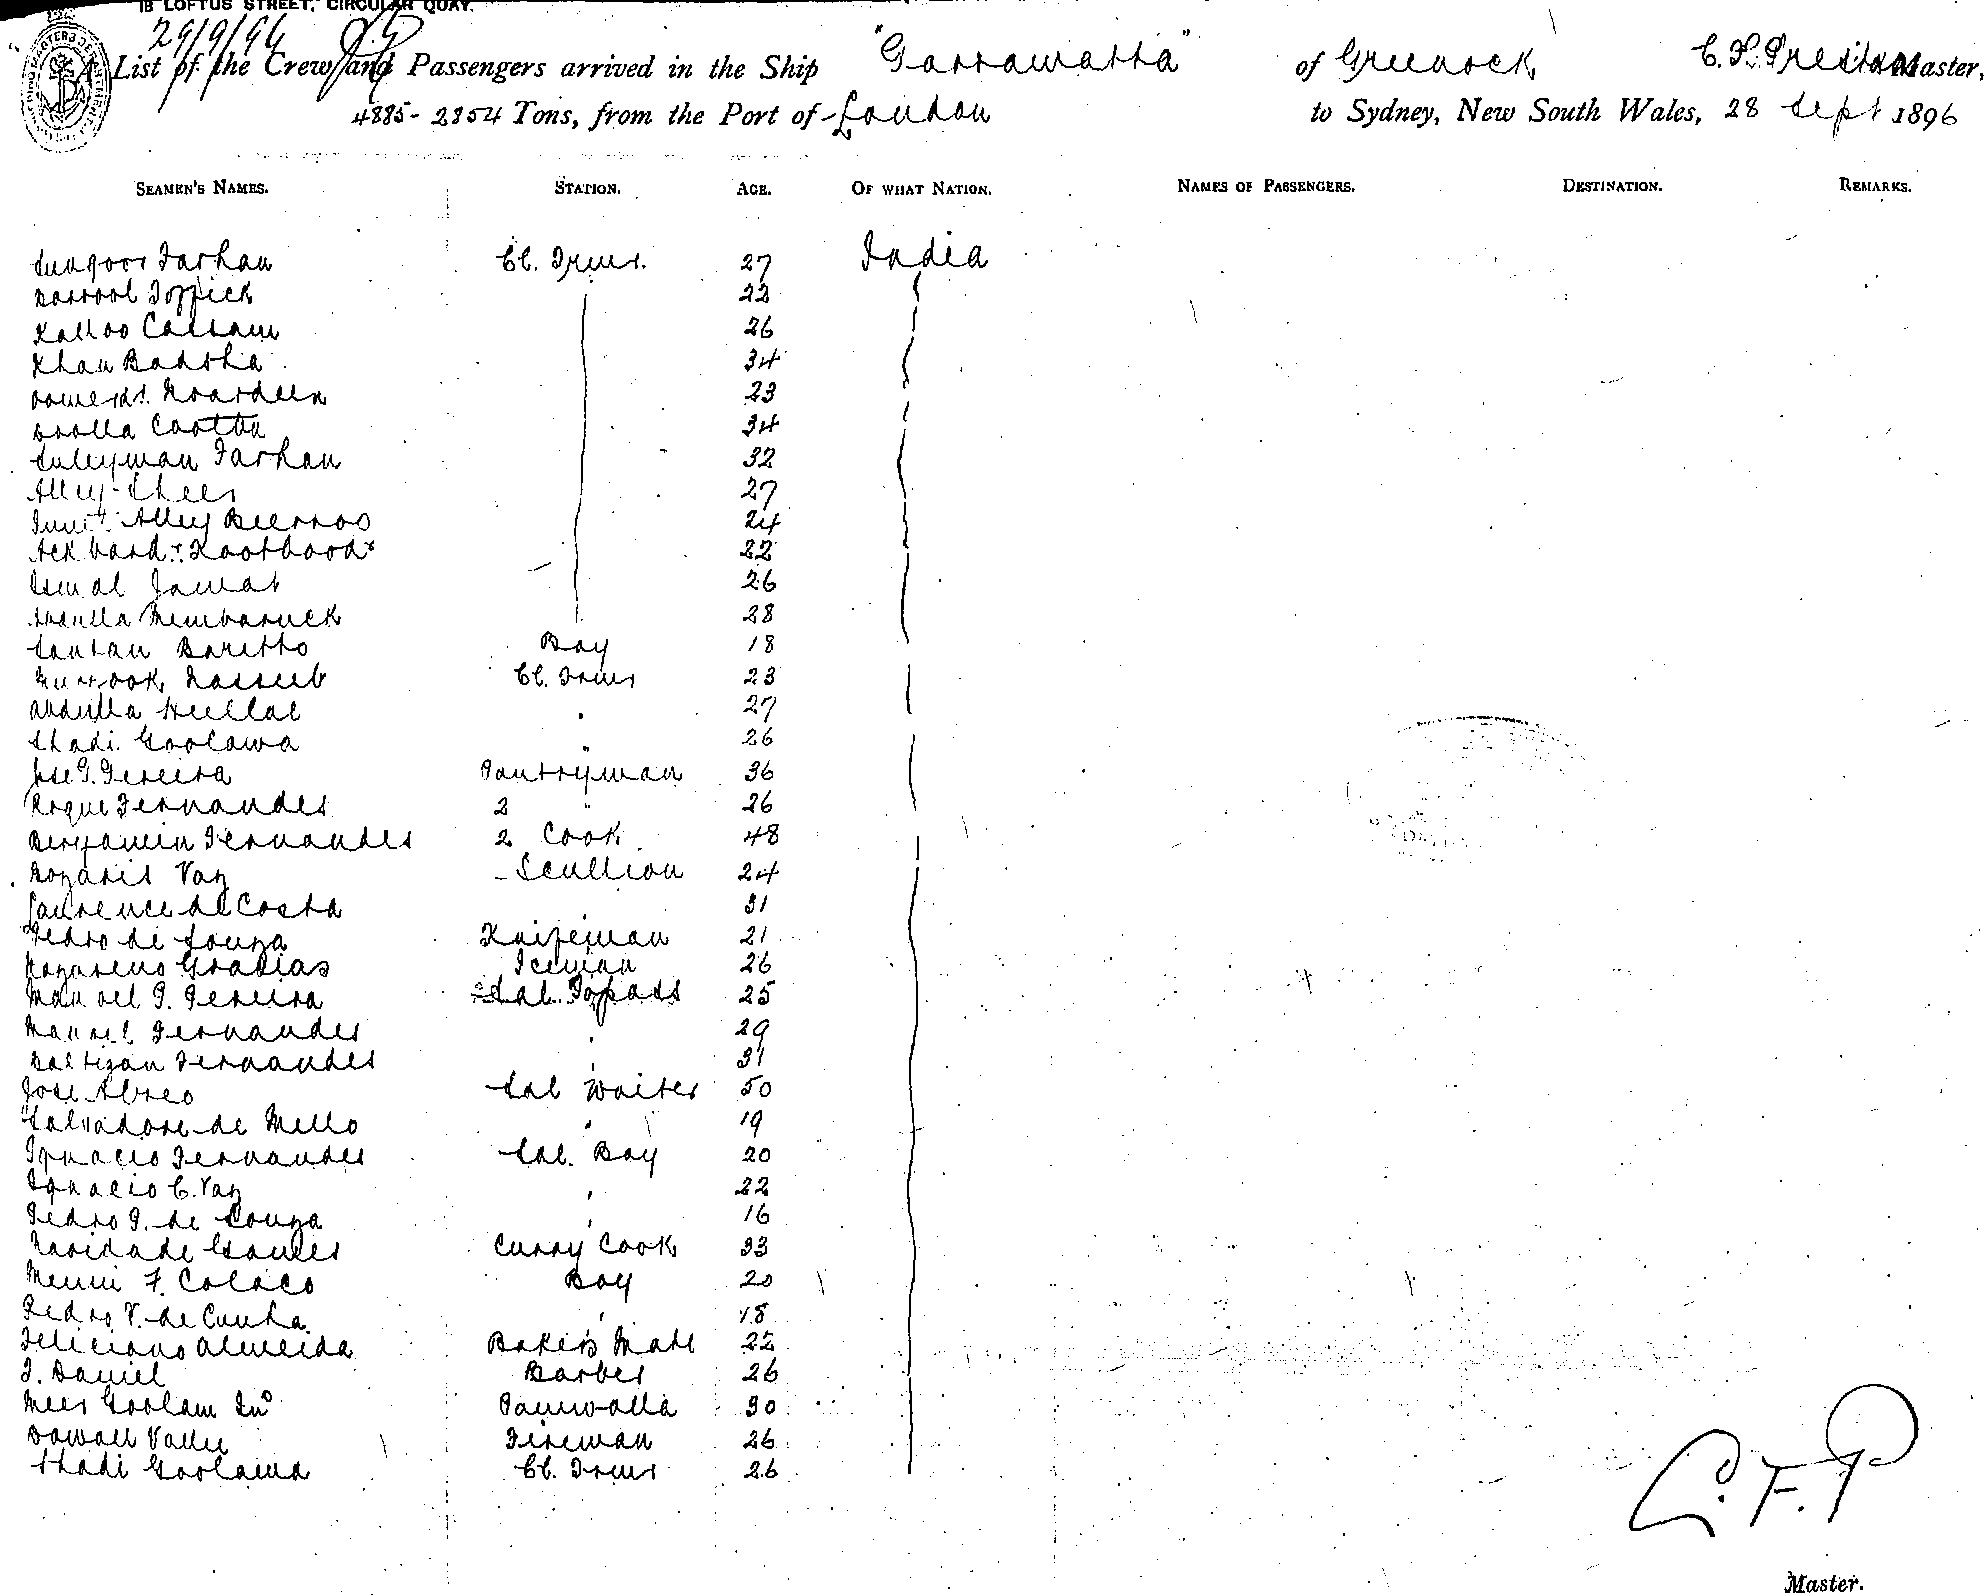 18 LOFTUS STREET, CIRCULAR QUAY.
29/9/96
List of the Crew and Passengers arrived in the Ship "Parramatta" of Greenock C. F. Preston Master,
4885 - 2854 Tons, from the Port of London to Sydney, New South Wales, 28 Sept 1896
SEAMEN'S NAMES. STATION. AGE. OF WHAT NATION. NAMES OF PASSENGERS. DESTINATION. REMARKS.
Farhan Cl. Trmr. 27 India
Toffick 22
Kalloo Cassam 26
Khan Badsha 34
Noordeen 23
34
Suleyman Farhan 32
Alley Sheer 27
Alley 24
22
Ismal Jamat 26
Abdulla Membaruck 28
Santan Baretto Boy 18
Nasseeb Cl. Trmr 23
Abdulla Hullal 27
Shadi Goolama 26
Jose P. Pereira Pantryman 36
Roque Fernandes 2 " 26
Benjamin Fernandes 2 Cook 48
Rozaris Vaz Scullion 24
Laurence de Costa 31
Pedro de Souza Knifeman 21
Nazareno Gracias Iceman 26
Manoel P. Pereira Sal. Topass 25
Manoel Fernandes " 29
Bastizan Fernandes " 31
Jose Abreo Sal Waiter 50
Salvadore de Mello " 19
Ignacio Fernandes Sal. Boy 20
Ignacio C. Vaz " 22
Pedro P. de Souza " 16
Gomes Curry Cook 33
F. Colaco Boy 20
Pedro V. de Cunha " 18
Feliciano Almeida Baker's Mate 22
Daniel Barber 26
Meer Goolam Paniwalla 30
Fireman 26
Shadi Goolama Cl. Trmr 26
C. F. P
Master.